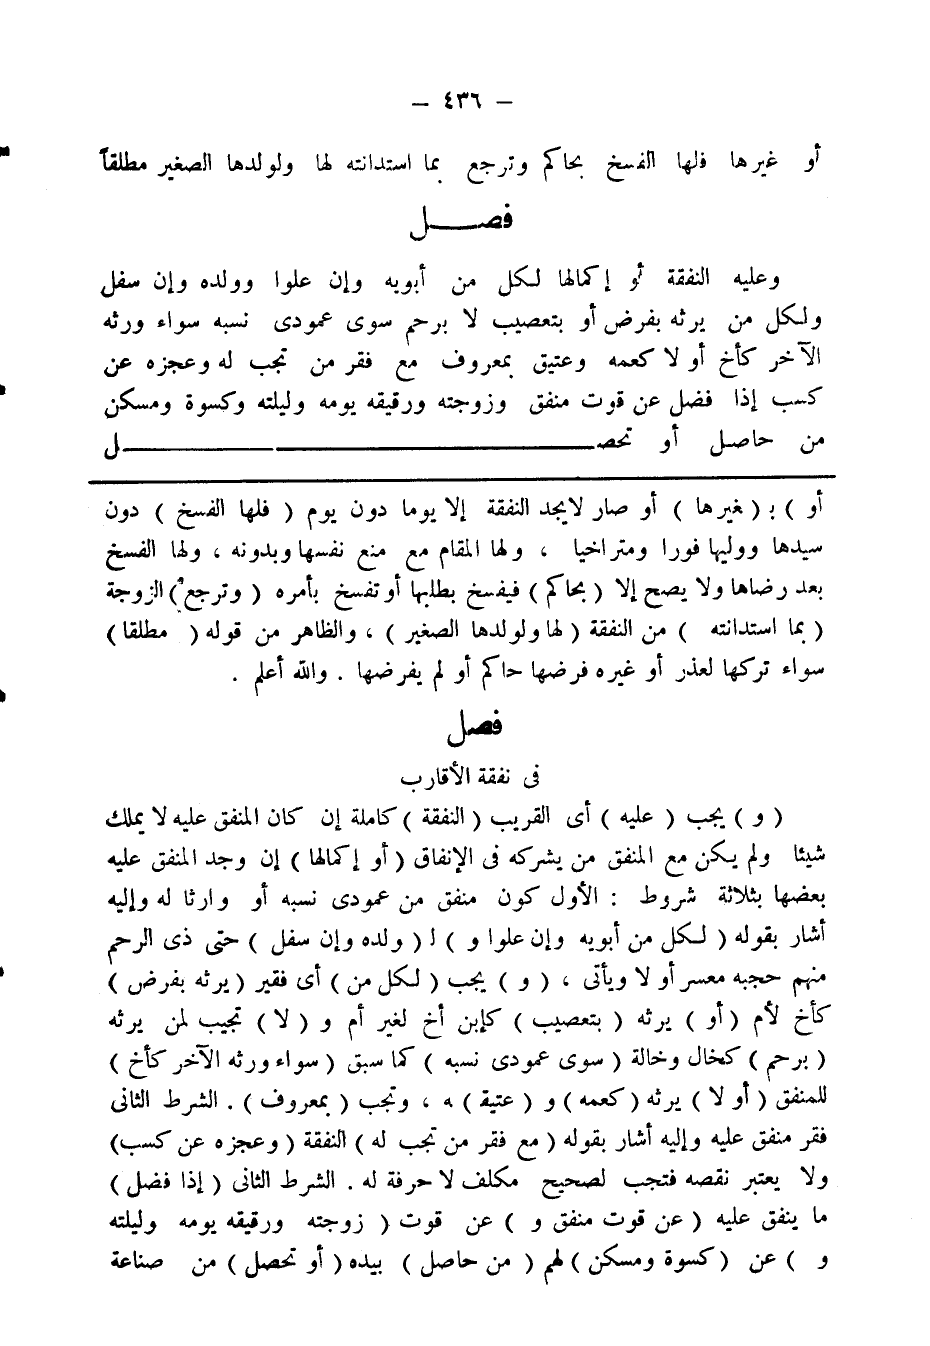 — ٤٣٦ —
أو غيرها فلها الفسخ بحاكم وترجع بما استدانته لها ولولدها الصغير مطلقاً
فصـــل
وعليه النفقة أو إكمالها لكل من أبويه وإن علوا وولده وإن سفل
ولكل من يرثه بفرض أو بتعصيب لا برحم سوى عمودى نسبه سواء ورثه
الآخر كأخ أو لا كعمه وعتيق بمعروف مع فقر من تجب له وعجزه عن
كسب إذا فضل عن قوت منفق وزوجته ورقيقه يومه وليلته وكسوة ومسكن
من حاصل أو تحصـــــــل
أو ) بـ ( غيرها ) أو صار لايجد النفقة إلا يوما دون يوم ( فلها الفسخ ) دون
سيدها ووليها فورا ومتراخيا ، ولها المقام مع منع نفسها وبدونه ، ولها الفسخ
بعد رضاها ولا يصح إلا ( بحاكم ) فيفسخ بطلبها أو تفسخ بأمره ( وترجع ) الزوجة
( بما استدانته ) من النفقة ( لها ولولدها الصغير ) ، والظاهر من قوله ( مطلقا )
سواء تركها لعذر أو غيره فرضها حاكم أو لم يفرضها . والله أعلم .
فصل
فى نفقة الأقارب
( و ) يجب ( عليه ) أى القريب ( النفقة ) كاملة إن كان المنفق عليه لا يملك
شيئا ولم يكن مع المنفق من يشركه فى الإنفاق ( أو إكمالها ) إن وجد المنفق عليه
بعضها بثلاثة شروط : الأول كون منفق من عمودى نسبه أو وارثا له وإليه
أشار بقوله ( لكل من أبويه وإن علوا و ) لـ ( ولده وإن سفل ) حتى ذى الرحم
منهم حجبه معسر أو لا ويأتى ، ( و ) يجب ( لكل من ) أى فقير ( يرثه بفرض )
كأخ لأم ( أو ) يرثه ( بتعصيب ) كإبن أخ لغير أم و ( لا ) تجيب لمن يرثه
( برحم ) كخال وخالة ( سوى عمودى نسبه ) كما سبق ( سواء ورثه الآخر كأخ )
للمنفق ( أو لا ) يرثه ( كعمه ) و ( عتيق ) ـه ، وتجب ( بمعروف ) . الشرط الثانى
فقر منفق عليه وإليه أشار بقوله ( مع فقر من تجب له ) النفقة ( وعجزه عن كسب )
ولا يعتبر نقصه فتجب لصحيح مكلف لا حرفة له . الشرط الثانى ( إذا فضل )
ما ينفق عليه ( عن قوت منفق و ) عن قوت ( زوجته ورقيقه يومه وليلته
و ) عن ( كسوة ومسكن ) لهم ( من حاصل ) بيده ( أو تحصل ) من صناعة